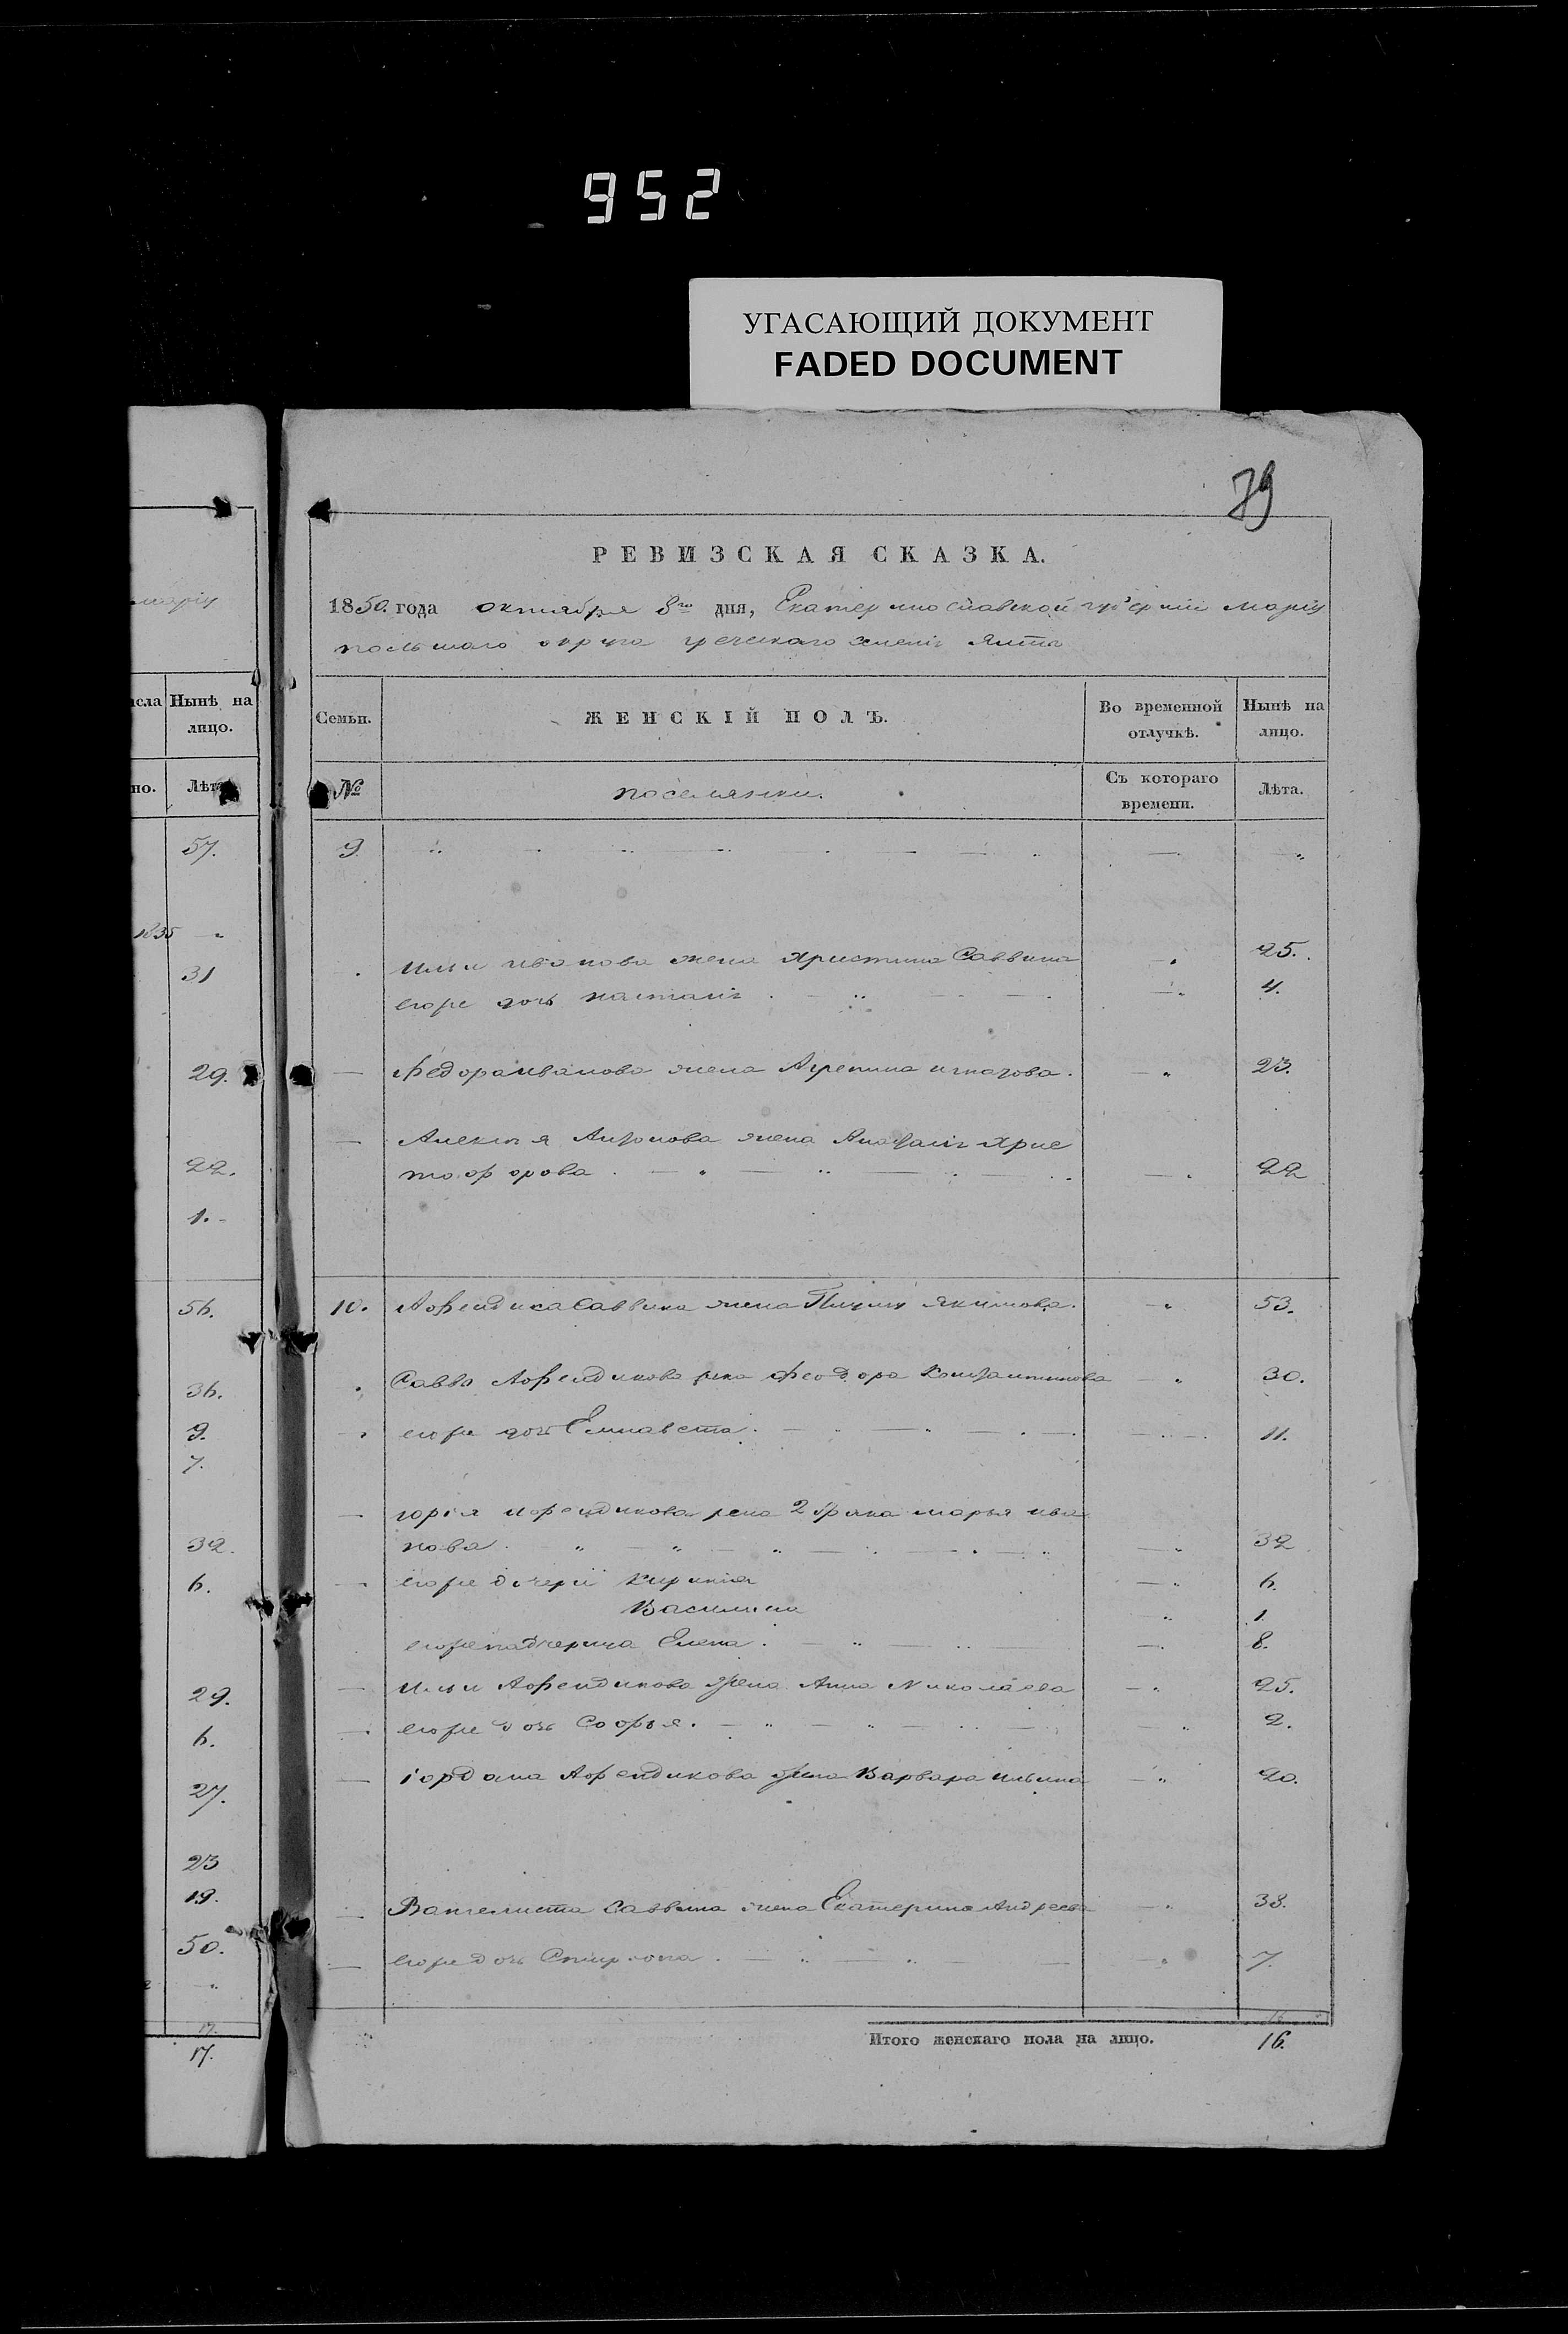 952
УГАСАЮЩИЙ ДОКУМЕНТ
FADED DOCUMENT
79
РЕВИЗСКАЯ СКАЗКА.
1850. года октября 8го дня, Екатеринославской губернии Маріу
польскаго округа греческаго селенія Ялта
Семьи.
ЖЕНСКІЙ ПОЛЪ.
Во временной отлучкѣ.
Нынѣ на лицо.
№
поселянки.
Съ котораго времени.
Лѣта.
9.
Ильи Иванова жена Христина Саввина 25.
егоже дочь Настасія 4.
Федора Иванова жена Агрепина Игнатова. 23.
Алексѣя Антонова жена Анастасія Хрис
тофорова 22
10. Афендика Саввина жена Якимова. 53.
Саввы Афендикова жена Феодора Константинова 30.
егоже дочь Елисавета. 11.
Юрія Афендикова жена 2 брака Марья Ива
нова 32
егоже дочери Кирикія 6.
Василиса 1.
егоже падчерица Елена. 8.
Ильи Афендикова жена Анна Николаева 25.
егоже дочь Софья. 2.
Іордана Афендикова жена Варвара Ильина 20.
Вангелиста Саввина жена Екатерина Андреева 38.
егоже дочь 7.
Итого женскаго пола на лицо. 16.
маріу
исла
Нынѣ на лицо.
но.
Лѣта
57.
1835
31
29.
22.
1.
56.
36.
9.
7.
32.
6.
29.
6.
27.
23
19.
50.
17.
17.